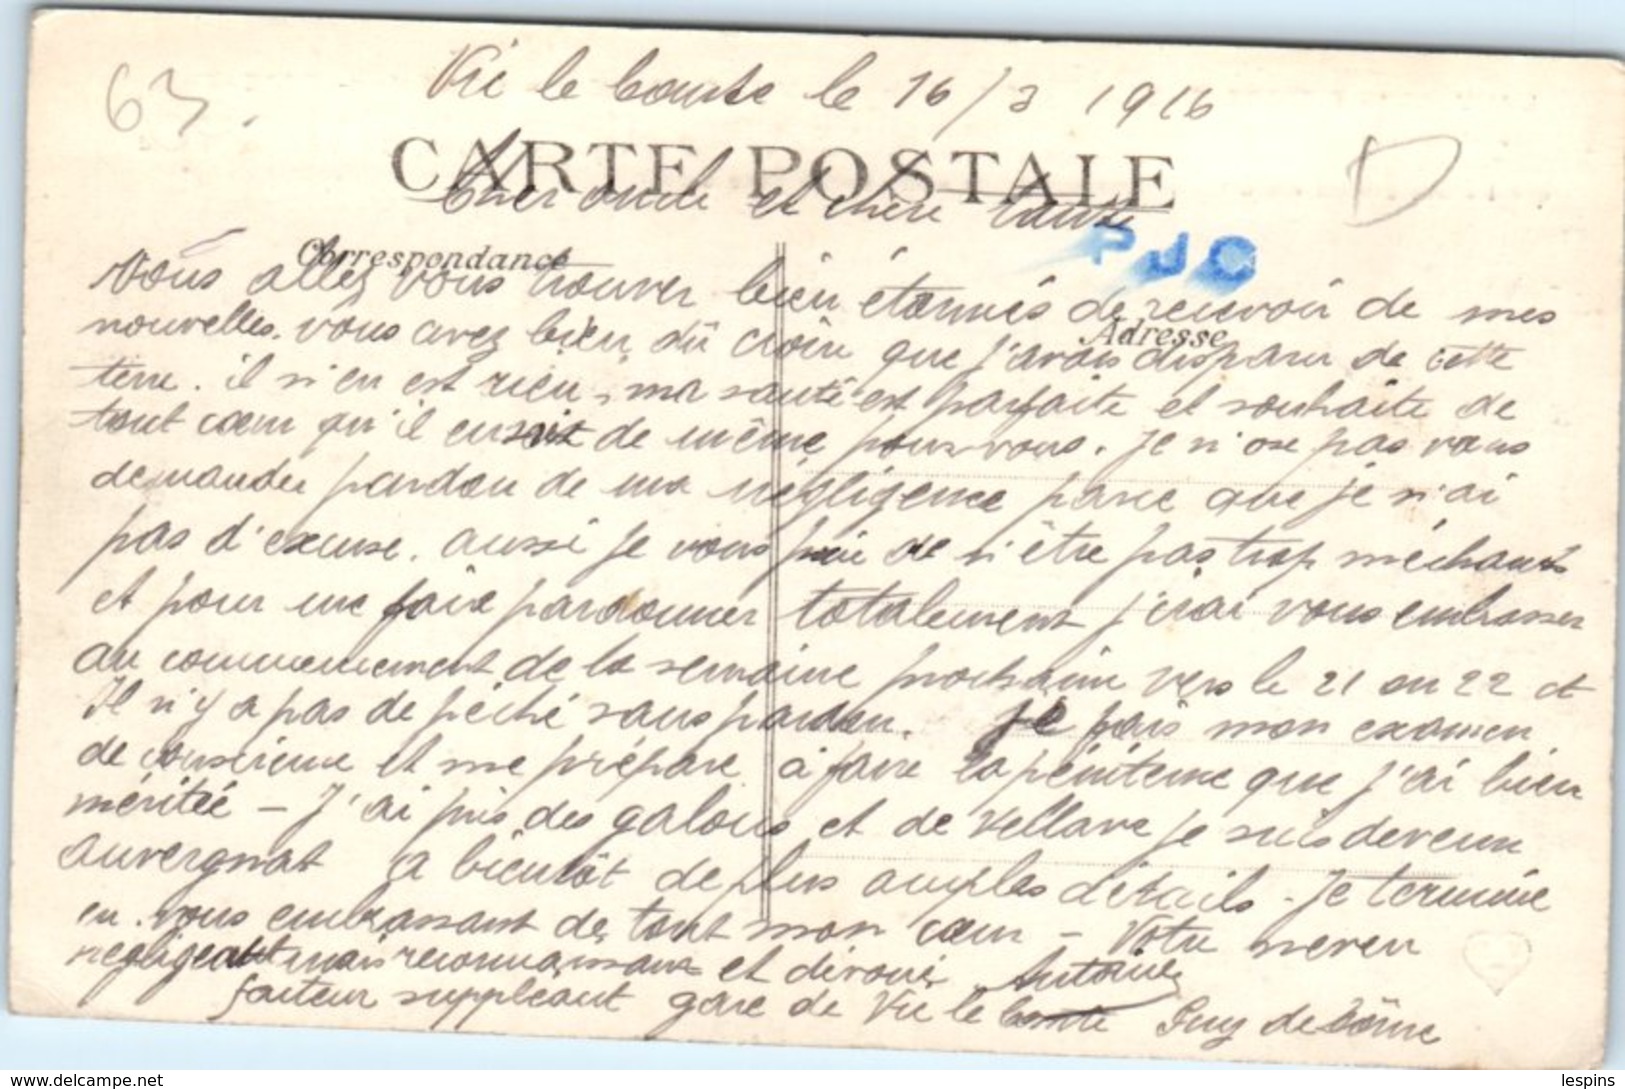 63.
Vic le Comte le 16/3 1916
D
CARTE POSTALE
Cher oncle et chère tante
PJC
Correspondance
Vous allez vous trouver bien étonnés de recevoir de mes
Adresse
nouvelles. vous avez bien dû croire que j'avais disparu de cette
terre. il n'en est rien, ma santé est parfaite et souhaite de
tout cœur qu'il en soit de même pour vous. Je n'ose pas vous
demander pardon de ma négligence parce que je n'ai
pas d'excuse. aussi je vous prie de n'être pas trop méchants
et pour me faire pardonner totalement j'irai vous embrasser
au commencement de la semaine prochaine vers le 21 ou 22 et
Il n'y a pas de péché sans pardon. Je fais mon examen
de conscience et me prépare à faire la pénitence que j'ai bien
méritée - J'ai pris des galons et de Vellave je suis devenu
auvergnat a bientôt de plus amples détails. Je termine
en vous embrassant de tout mon cœur - Votre neveu
négligeant mais reconnaissant et dévoué Antoine
facteur suppléant gare de Vic le Comte Puy de Dôme
lespins
delcampe.net